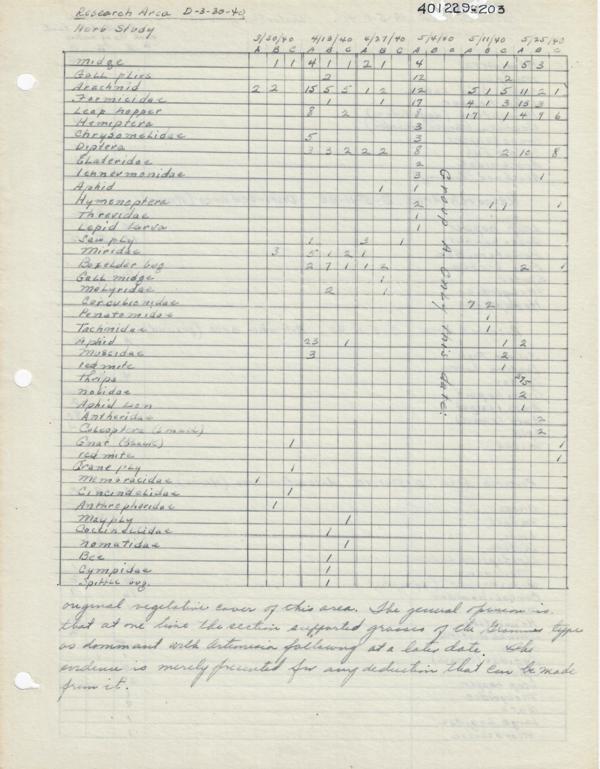 Research Area D-3-30-40
401229a203
Herb Study
3/30/40 4/13/40 4/27/40 5/4/40 5/11/40 5/25/40
A B C A B C A B C A B C A B C A B C
Midge 1 1 4 1 1 2 1 4 1 5 3
Gall flies 2 12 2
Arachnid 2 2 15 5 5 1 2 12 5 1 5 11 2 1
Formicidae 1 1 17 4 1 3 15 3
Leap hopper 8 2 8 17 1 4 7 6
Hemiptera 3
Chrysomelidae 5 3
Diptera 3 3 2 2 2 8 2 10 8
Elateridae 2
Ichneumonidae 3 1
Aphid 1 1
Hymenoptera 2 1 1 1
Threvidae 1
Lepid larva 1
Saw fly 1 3 1
Miridae 3 5 1 2 1
Boxelder bug 2 7 1 1 2 2 1
Gall midge 1
Malyridae 2 1
Corcubionidae 7 2
Penatomidae 1
Tachnidae 1
Aphid 23 1 1 2
Muscidae 3 2
red mite 1
Thrips 275
nabidae 2
Aphid lion 1
Antheridae 2
Coleoptera (small) 2
Gnat (black) 1 1
red mite 1
Crane fly 1
Memoracidae 1
Cincindelidae 1
Anthrephoridae 1
May fly 1
Coccinellidae 1
nematidae 1
Bee 1
Cympidae 1
Spittle bug. 1
Group A. Only this date.
original vegetative cover of this area. The general opinion is
that at one time the section supported grasses of the type
as dominant with Artemisia following at a later date. The
evidence is merely presented for any deduction that can be made
from it.